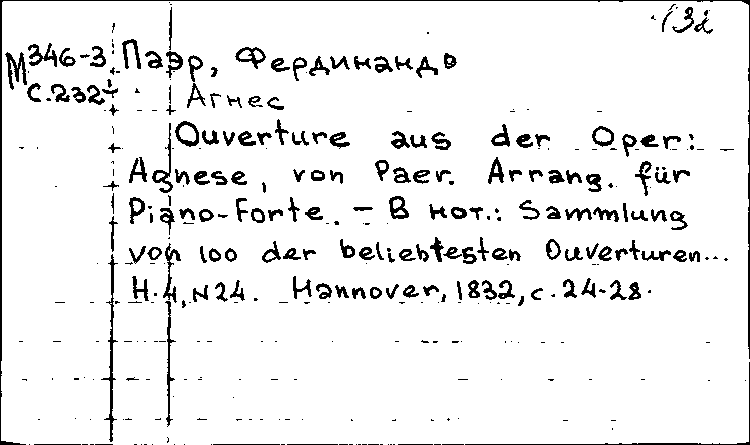 132
M346-3 Паэр, Фердинандо
с.232 Агнес
Ouverture aus der Oper:
Agnese, von Paer. Arrang. für
Piano-Forte. - В нот.: Sammlung
von 100 der beliebtesten Ouverturen...
H.4, N24. Hannover, 1832, с.24-28.